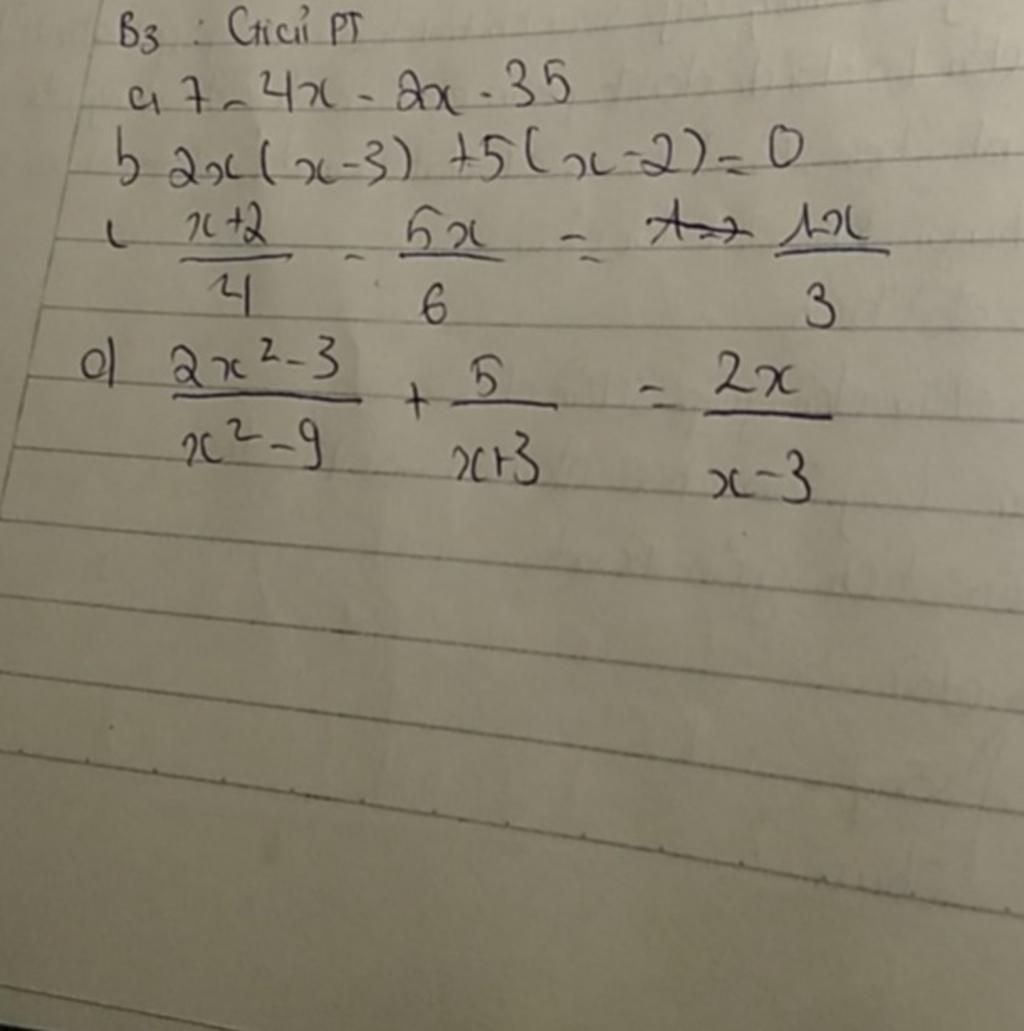 B3 : Giải PT
a, 7 - 4x - 2x - 35
b 2x(x-3) + 5(x-2) = 0
c \frac{x+2}{4} - \frac{5x}{6} = \frac{1x}{3}
d) \frac{2x^2-3}{x^2-9} + \frac{5}{x+3} = \frac{2x}{x-3}